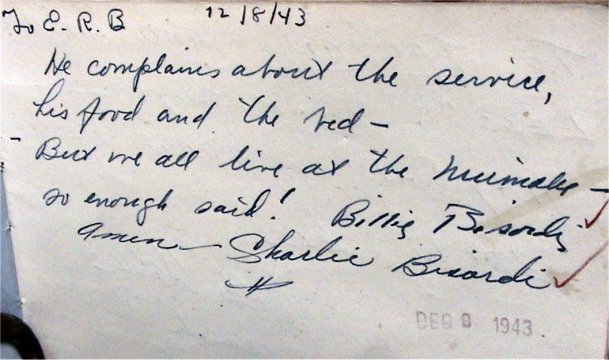 To E. R. B 12/8/43
He complains about the service,
his food and the bed —
But we all live at the Niumalu —
so enough said! Billie Bisordi
Amen — Charlie Bisordi
DEC 8 1943.